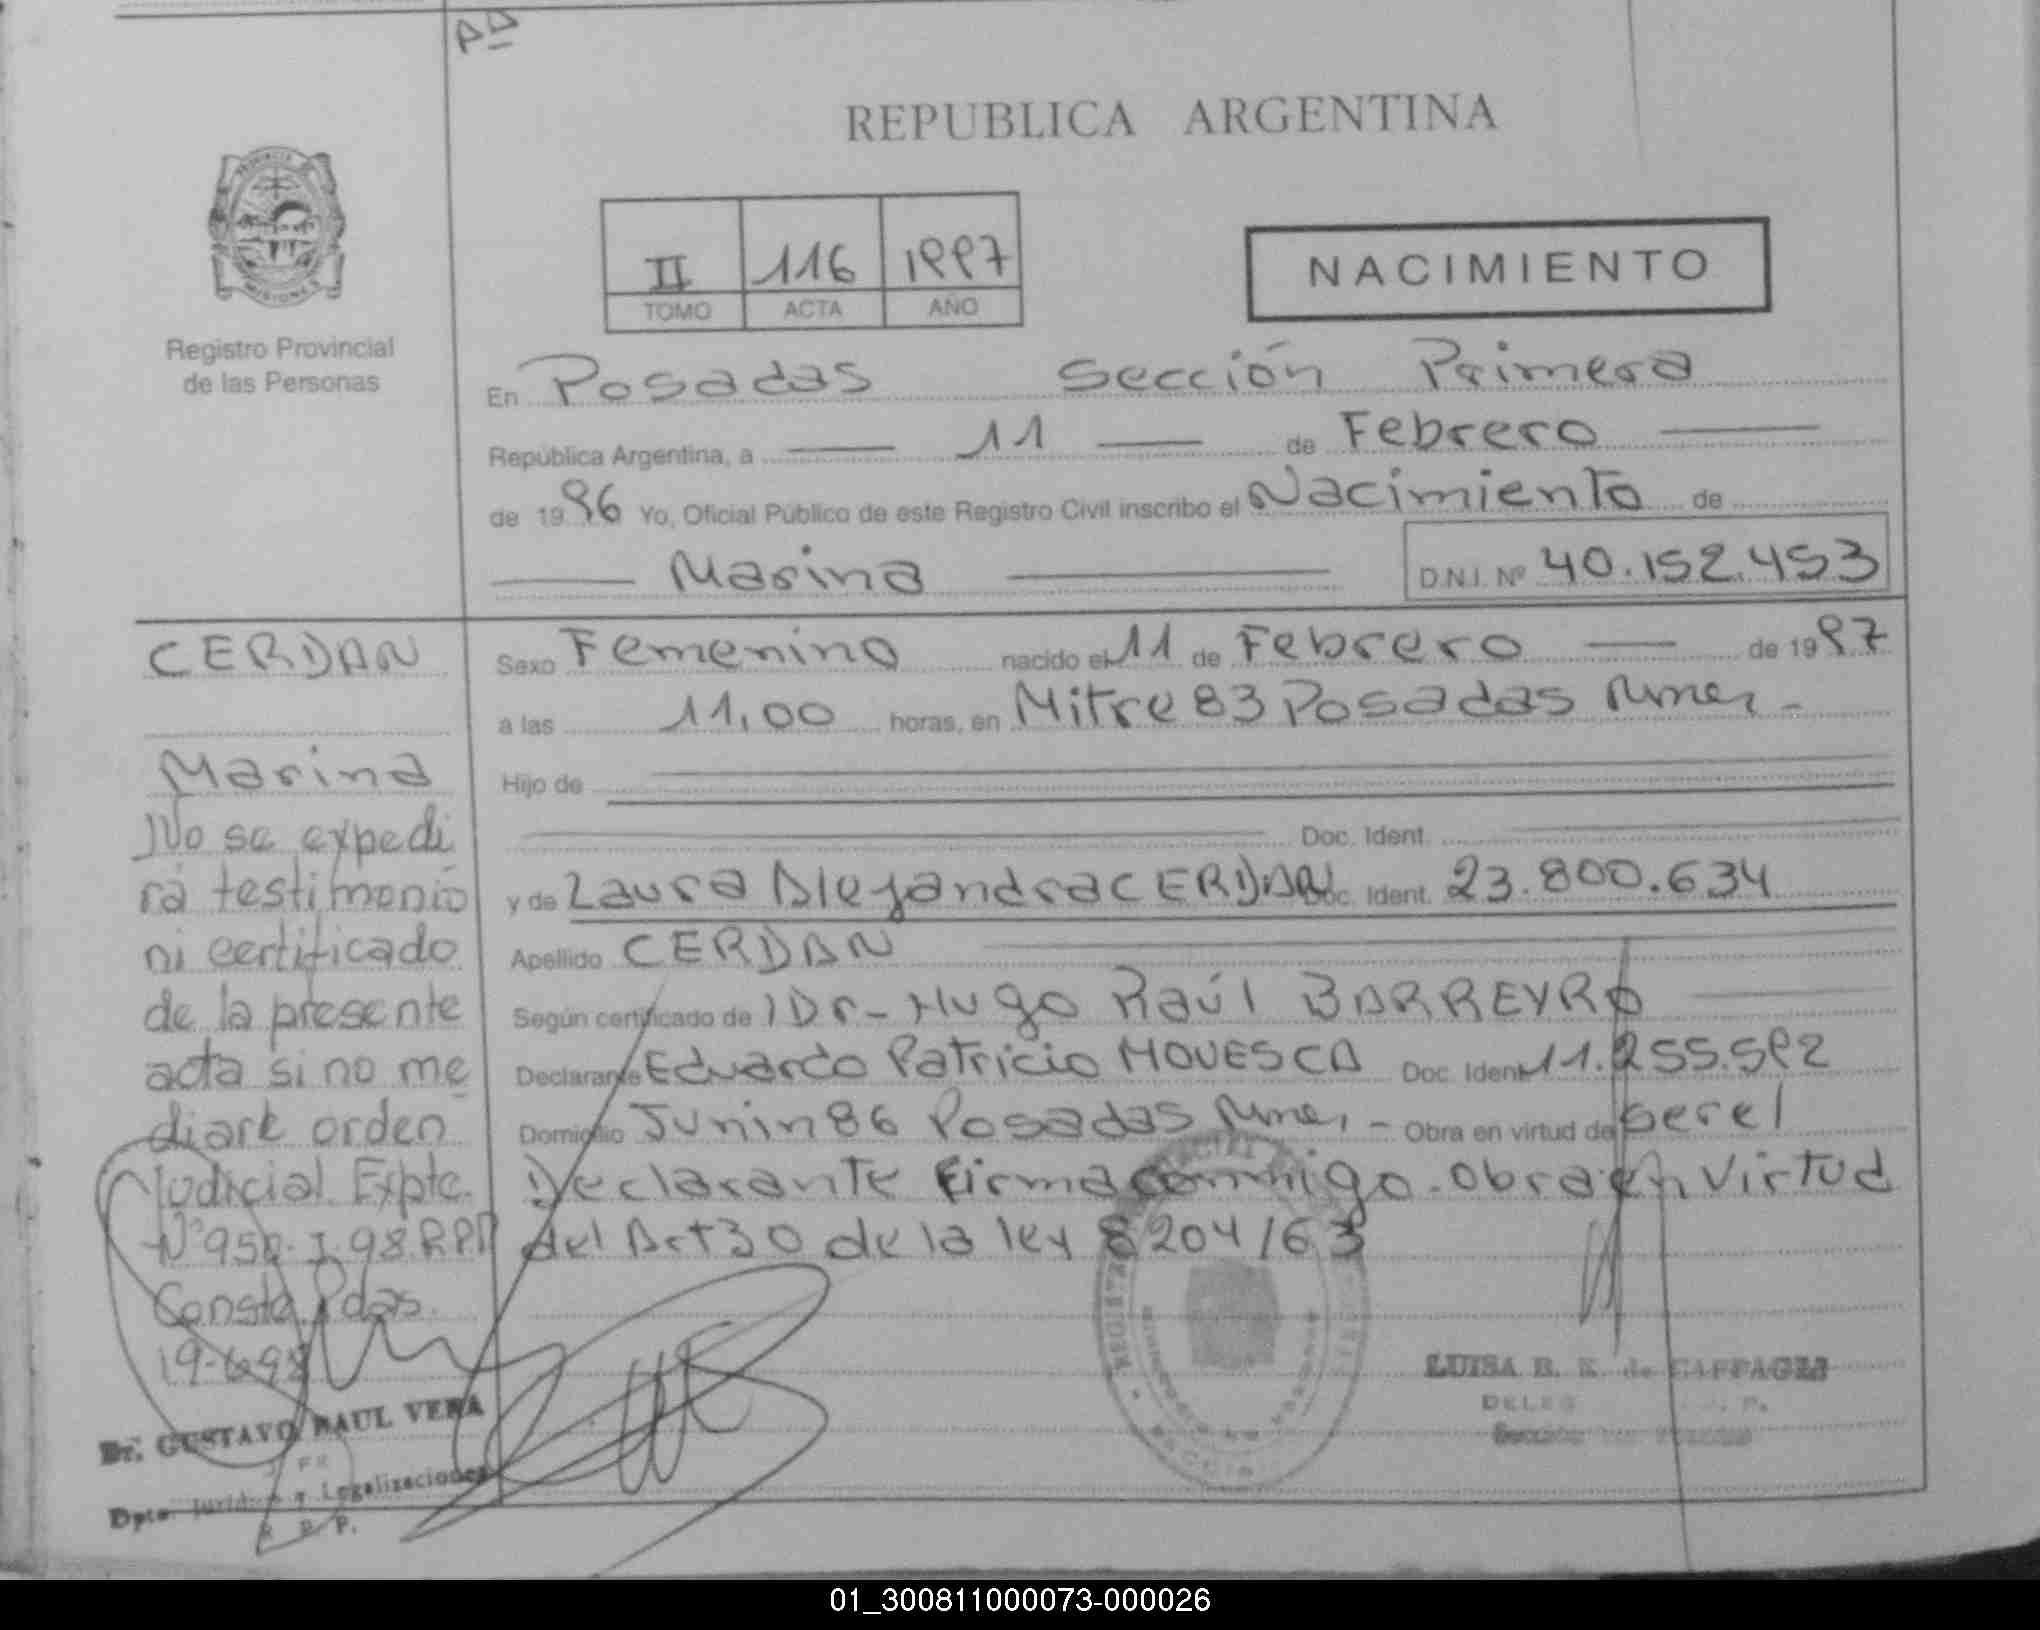 REPUBLICA ARGENTINA
PROVINCIA DE MISIONES
Registro Provincial
de las Personas
II 116 1997
TOMO ACTA AÑO
NACIMIENTO
En Posadas Sección Primera
República Argentina, a 11 de Febrero
de 1996 Yo, Oficial Público de este Registro Civil inscribo el Nacimiento de
Marina D.N.I. Nº 40.152.453
CERDAN
Marina
No se expedi
rá testimonio
ni certificado
de la presente
acta si no me
diare orden
Judicial Expte.
Consta Pdas.
19-6-98
Dr. GUSTAVO RAUL VERA
Dpto. Legalizaciones
R. P. P.
Sexo Femenino nacido el 11 de Febrero de 1997
a las 11,00 horas, en Mitre 83 Posadas Mnes -
Hijo de
Doc. Ident.
y de Laura Alejandra CERDAN Doc. Ident. 23.800.634
Apellido CERDAN
Según certificado de Dr- Hugo Raúl BARREYRO
Declarante Eduardo Patricio Doc. Ident 11.255.592
Domicilio Junin 86 Posadas Mnes, - Obra en virtud de ser el
Declarante Firma conmigo. Obra en Virtud
del Art 30 de la ley 8204/63
LUISA B. K. de
01_300811000073-000026